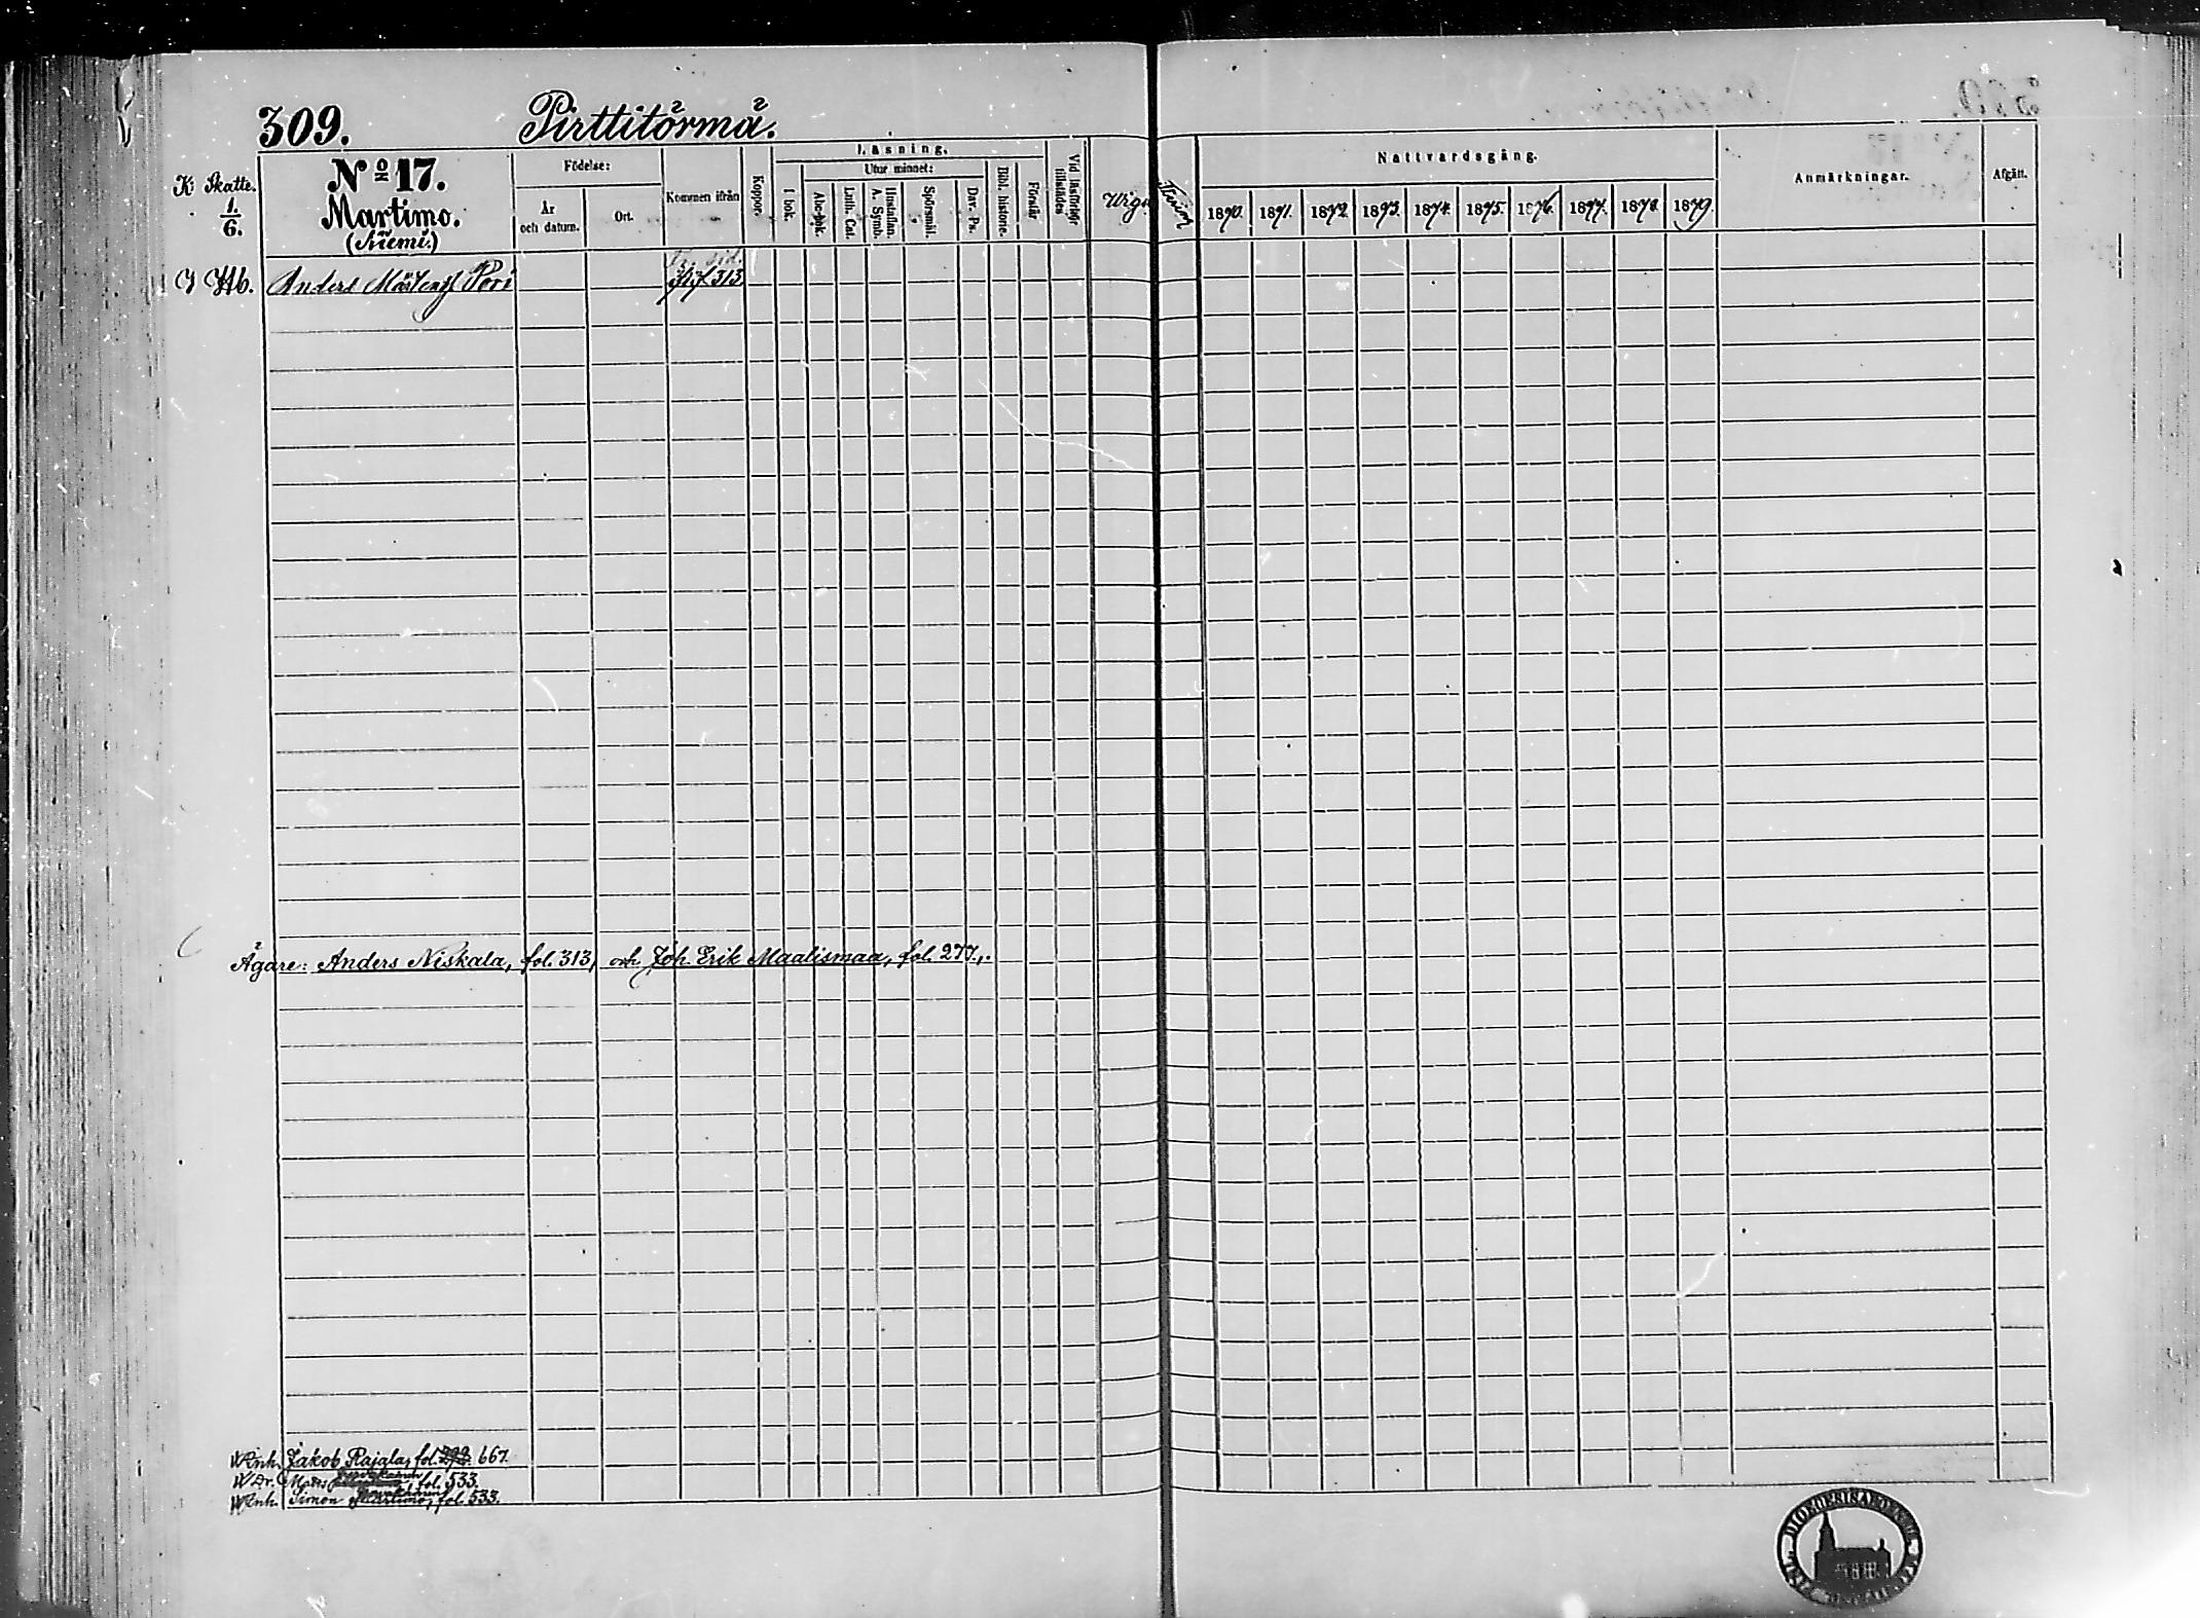 309. Pirttitörmä.
K: Skatte. 1/6.
No 17.
Martimo.
(Niemi.)
Födelse:
År och datum.
Ort.
Kommen ifrån
Koppor.
Läsning.
I bok.
Utur minnet:
Abc-bok.
Luth. Cat.
A. Symb.
Hustaflan.
Spörsmål.
Dav. Ps.
Bibl. historie.
Förstår
Vid läsförhör tillstädes
Nattvardsgång.
1870. 1871. 1872. 1873. 1874. 1875. 1876. 1877. 1878. 1879.
Anmärkningar.
Afgått.
Anders Pori 313
Ägare: Anders Niskala, fol. 313, och Joh. Erik Maalismaa, fol. 277.
Enh. Jakob Rajala, fol. 292 667.
Dr. Mats fol. 533.
Enh. Simon Martimo, fol. 533.